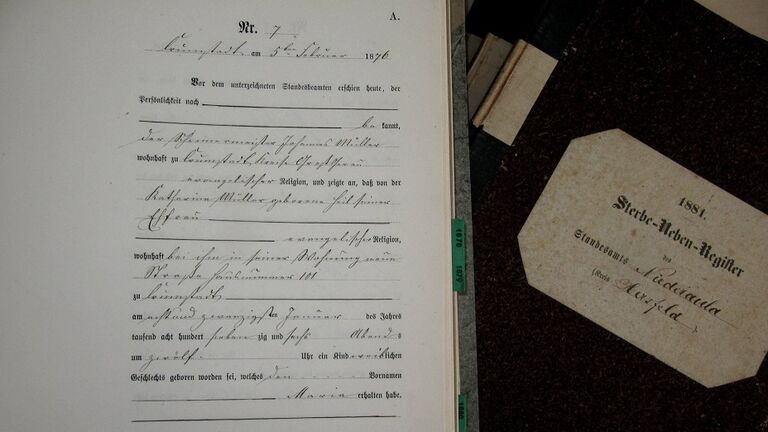 A.
Nr. 7
Crumstadt am 5ten Februar 1876
Vor dem unterzeichneten Standesbeamten erschien heute, der
Persönlichkeit nach
be kannt,
der Schreinermeister Johannes Müller
wohnhaft zu Crumstadt Kreis Groß-Gerau
evangelischer Religion, und zeigte an, daß von der
Katharina Müller geborene Heil seiner
Ehefrau
evangelischer Religion,
wohnhaft bei ihm in seiner Wohnung neue
Straße Hausnummer 101
zu Crumstadt
am acht und zwanzigsten Januar des Jahres
tausend acht hundert sieben zig und sechs Abends
um zwölf Uhr ein Kind weiblichen
Geschlechts geboren worden sei, welches den Vornamen
Maria erhalten habe.
1876 1876
1881.
Sterbe-Neben-Register
des
Standesamts Niederaula
(Kreis Hersfeld)